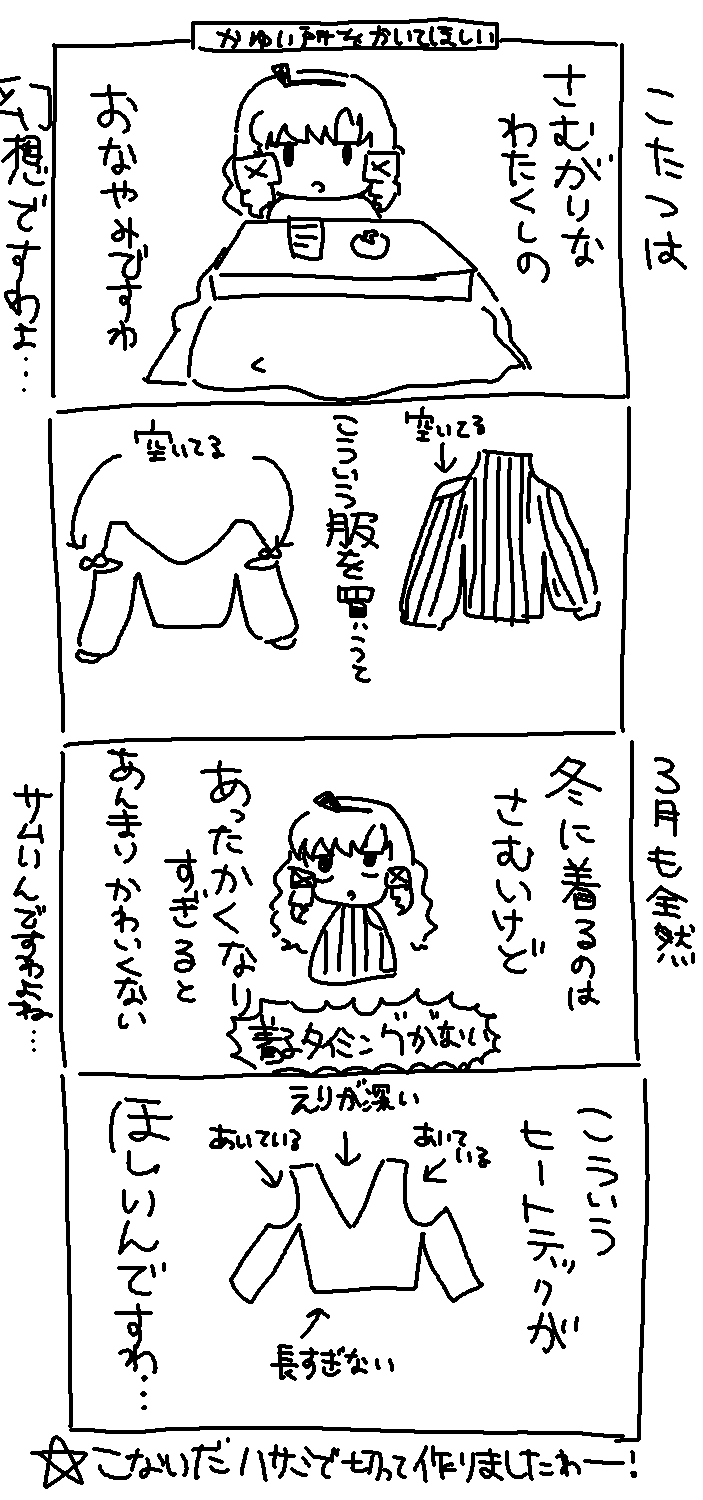 かゆい所をかいてほしい
こたつは
さむがりな
わたくしの
おなやみですわ
幻想ですわよ…
空いてる
こういう服を買って
空いてる
3月も全然
冬に着るのは
さむいけど
あったかくなり
すぎると
あんまりかわいくない
着るタイミングがない
サムいんですわよね…
こういう
ヒートテックが
えりが深い
あいて
いる
あいている
長すぎない
ほしいんですわ…
☆こないだハサミで切って作りましたわー!